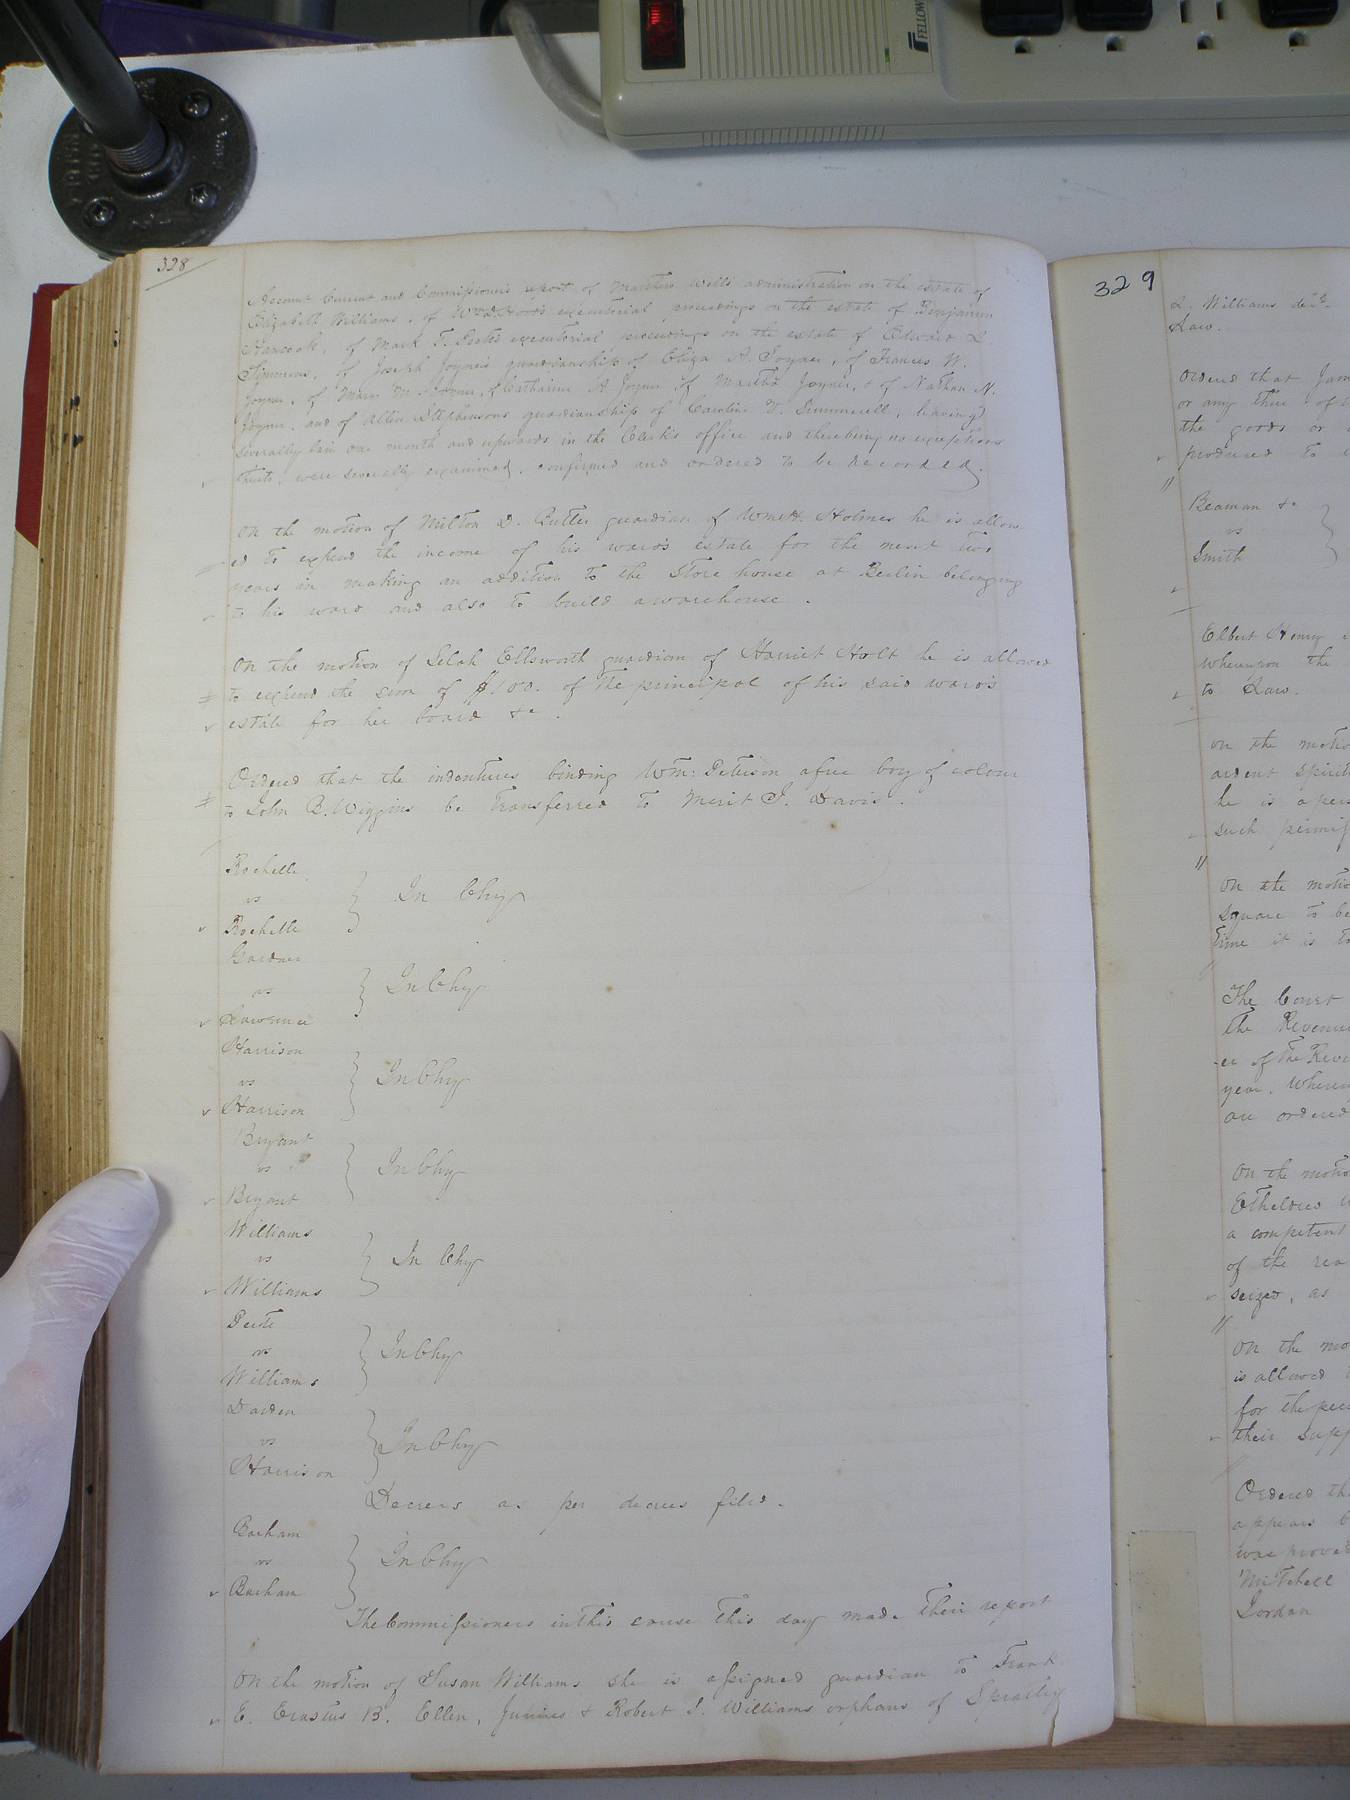 328
Account Current and Commissioners report of Matthew Wills administration on the estate of
Elizabeth Williams, of Wm executorial proceedings on the estate of Benjamin
Hancock, of Mark T. executorial proceedings on the estate of Edward L
Simmons, of Joseph Joyner's guardianship of Eliza A. Joyner, of Frances W.
Joyner, of Mary M. Joyner, of Catharine A Joyner, of Martha Joyner, & of Nathan N.
Joyner, and of Allen Stephensons guardianship of Caroline V. Summerell, having
severally lain one month and upwards in the Clerk's office and there being no exceptions
thereto, were severally examined, confirmed and ordered to be Recorded.
On the motion of Milton D. Butler guardian of Wm H. Holmes he is allow
-ed to expend the income of his ward's estate for the next two
years in making an addition to the Store house at Berlin belonging
to his ward and also to build a warehouse.
On the motion of Selah Ellsworth guardian of Harriet Holt he is allowed
to expend the sum of $100. of the principal of his said ward's
estate for her board &c.
Ordered that the indentures binding Wm: Peterson a free boy of colour
to John B. Wiggins be Transferred to Merit J. Davis.
Rochelle
vs } In Chy
Rochelle
Gardner
vs } In Chy
Lawrence
Harrison
vs } In Chy
Harrison
Bryant
vs } In Chy
Bryant
Williams
vs } In Chy
Williams
vs } In Chy
Williams
Darden
vs } In Chy
Harrison
Decrees as per decrees filed.
Barham
vs } In Chy
Barham
The Commissioners in this cause this day made their report
On the motion of Susan Williams she is assigned guardian to Frank
E. Erastus B. Ellen, Junius & Robert S. Williams orphans of Spratley
329
L. Williams dec'd.
Law.
Ordered that Jam
or any three of
the goods or
produced to
Beaman &c
vs }
Smith
Elbert Henry
whereupon the
to Law.
On the motio
ardent spirit
he is a pers
such permis
On the motio
Square to be
time it is to
The Court
the Revenue
-er of the Reve
year. Where
are ordered
On the motio
Etheldred
a competent
of the rea
seized, as
On the mo
is allowed
for the
their supp
Ordered th
appears
was prove
Mitchell
Jordan
FELLOW